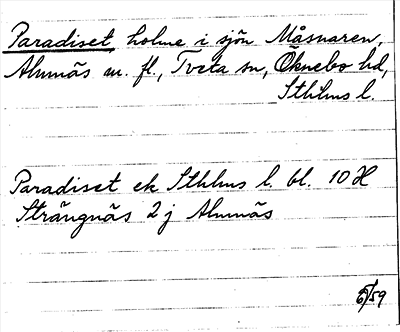 Paradiset holme i sjön Måsnaren,
Almnäs m. fl., Tveta sn, Öknebo hd,
Sthlms l.
Paradiset ek Sthlms l. bl. 10 H
Strängnäs 2 j Almnäs
/59